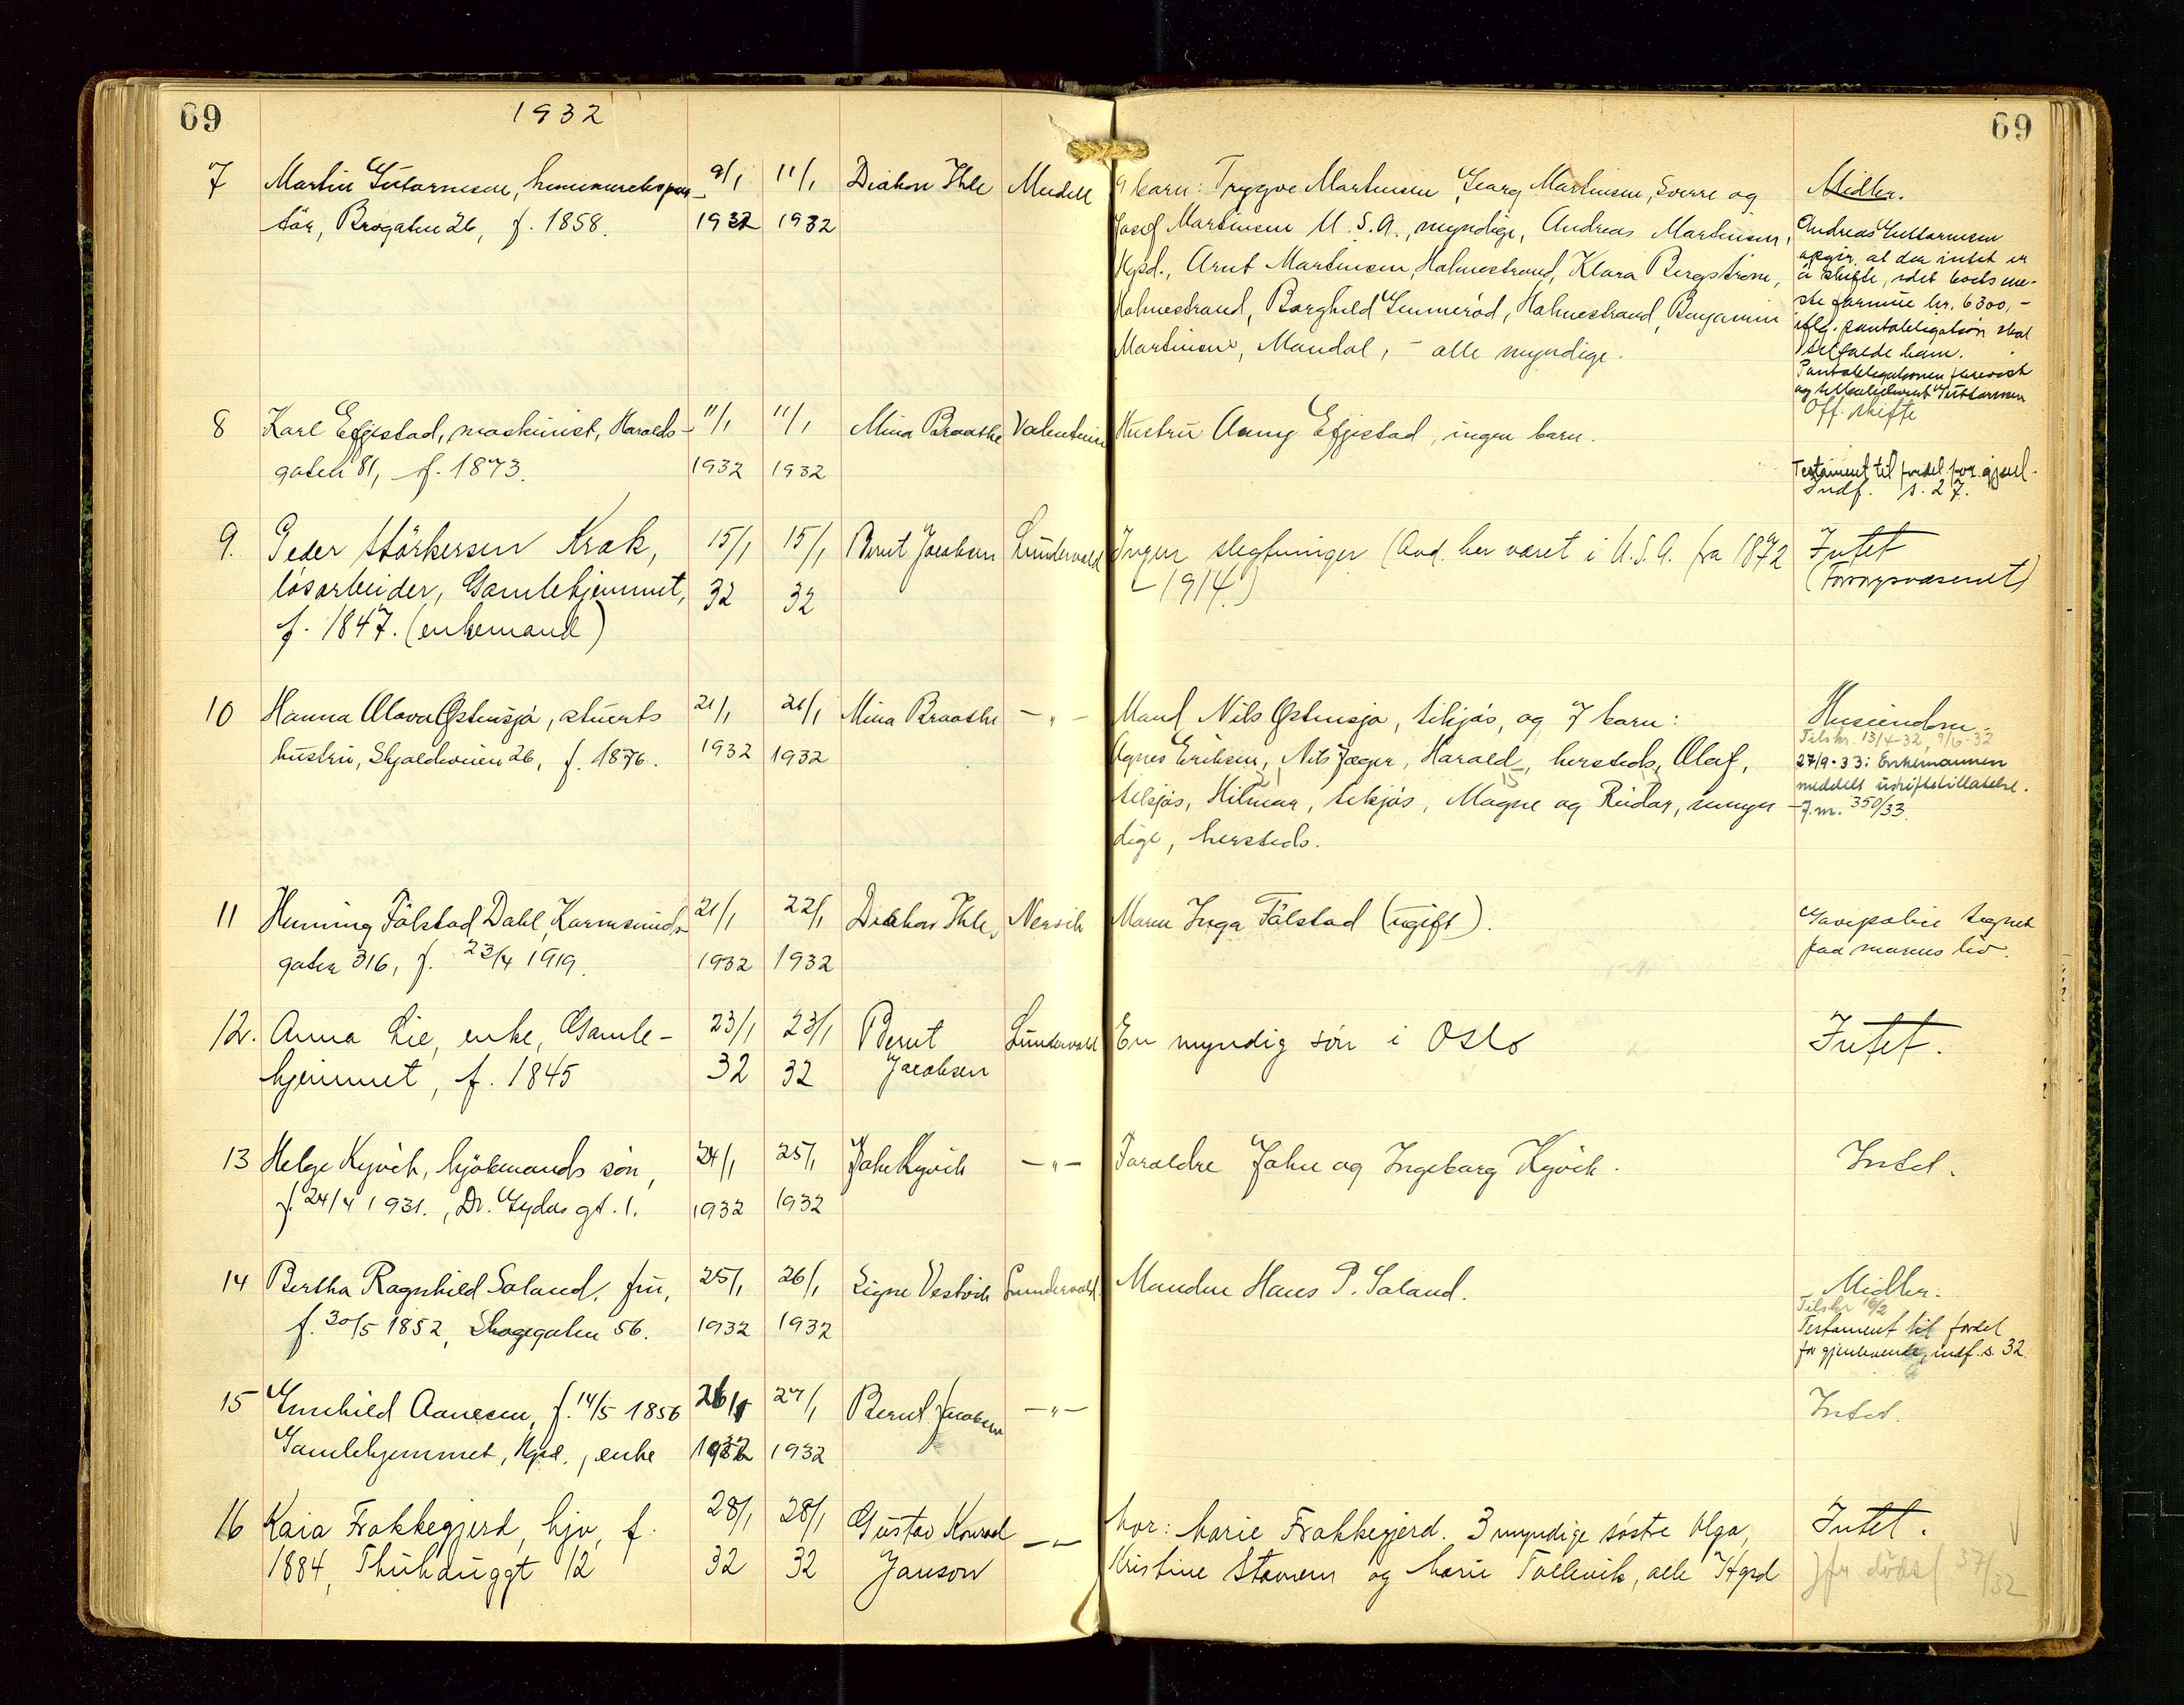 69
1932
69
7 Martin Guttormsen, hermetik
tör, Brogaten 26, f. 1858.
9/1 1932
11/1 1932
Diakon Ihle
Mudell
9 barn: Trygve Martinsen, Georg Martinsen, Sverre og
Josef Martinsen U.S.A., myndige, Andreas Martinsen,
Hgsd., Arnt Martinsen, Holmestrand, Klara Bergström,
Holmestrand, Borghild Gunneröd, Holmestrand, Benjamin
Martinsen, Mandal, - alle myndige.
Midler.
Andreas Guttormsen
opgir, at der intet er
å skifte, idet boets ene-
ste formue kr. 6300,-
iflg. pantobligation skal
tilfalde ham.
Pantobligationen forevist
og Guttormsen
8 Karl Effjestad, maskinist, Haralds-
gaten 81, f. 1873.
11/1 1932
11/1 1932
Mina Braathe
Valentin
Hustru Anny Effjestad, ingen barn.
Off. skifte
Testament til fordel for gjenl.
Indf. s. 27.
9. Peder Störkersen Krak,
lösarbeider, Gamlehjemmet,
f. 1847. (enkemand)
15/1 32
15/1 32
Bernt Jacobsen
Lundervold
Ingen slegtninger (Avd. har været i U.S.A. fra 1872
- 1914.)
Intet
(Forsorgsvæsenet)
10 Hanna Olava Østensjø, stuerts
hustru, Skjoldveien 26, f. 1876.
21/1 1932
21/1 1932
Mina Braathe
- " -
Mand Nils Østensjø, tilsjøs, og 7 barn:
Agnes Eriksen, Nils Jæger, Harald, hersteds, Olaf,
tilsjøs, Hilmar, tilsjøs, Magne og Reidar, umyn-
dige, hersteds.
Huseiendom.
Tilskr. 13/4-32, 9/6-32
27/9-33: Enkemannen
meddelt uskiftetillatelse.
J.nr. 350/33.
11 Henning Fölstad Dahl, Karmsunds-
gaten 316, f. 23/4 1919.
21/1 1932
22/1 1932
Diakon Ihle,
Nervik
Moren Inga Fölstad (ugift).
Gavepolice tegnet
paa morens liv.
12. Anna Lie, enke, Gamle-
hjemmet, f. 1845
23/1 32
23/1 32
Bernt
Jacobsen
Lundervold
En myndig sön i Oslo
Intet.
13 Helge Kyvik, kjöbmands sön,
f. 24/4 1931., Dr. Gydas gt. 1.
24/1 1932
25/1 1932
John Kyvik
- " -
Foreldre John og Ingeborg Kyvik.
Intet.
14 Bertha Ragnhild Soland, fru,
f. 30/5 1852, Skogegaten 56.
25/1 1932
26/1 1932
Signe Vestvik
Lundervold.
Manden Hans P. Soland.
Midler.
Tilskr 16/2
Testament til fordel
for gjenlevende, indf. s. 32.
15 Gunhild Aanesen, f. 14/5 1856
Gamlehjemmet, Hgsd., enke
26/1 1932
27/1 1932
Bernt Jacobsen
- " -
Intet.
16 Kaia Frakkegjerd, hjv, f.
1884, Thuhauggt 12
28/1 32
28/1 32
Gustav Konrad
Janson
- " -
Mor: Marie Frakkegjerd. 3 myndige söstre Olga,
Kristine Stavnem og Marie Tollevik, alle Hgsd
Intet.
jfr dödsf 37/32